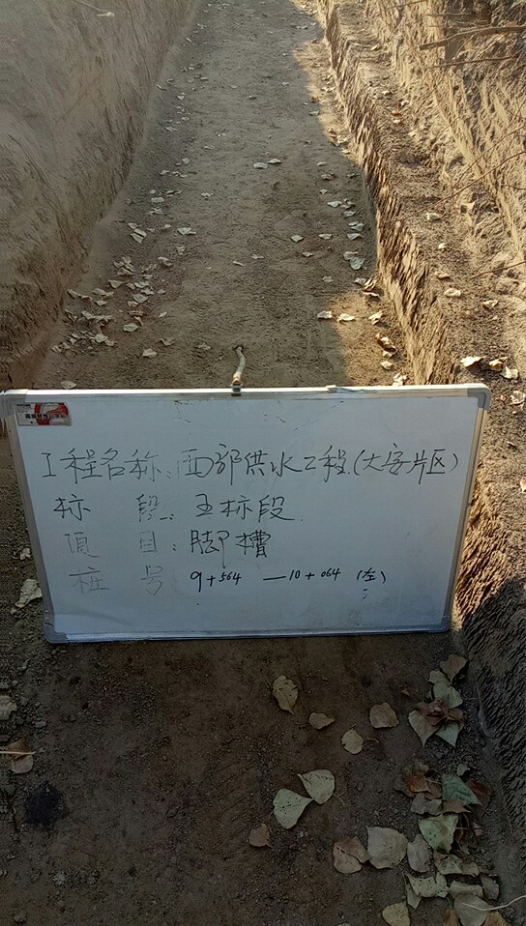 工程名称：西部供水工程（大安片区）
标 段：五标段
项 目：脚槽
桩 号 9+564 —10+064（左）